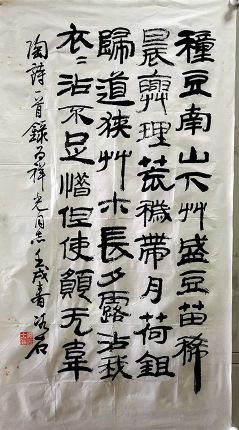 種豆南山下艸盛豆苗稀
晨興理荒穢帶月荷鉏
歸道狹艸木長夕露沾我
衣〻沾不足惜但使願无韋
陶詩一首錄為祥光同志壬戌春石